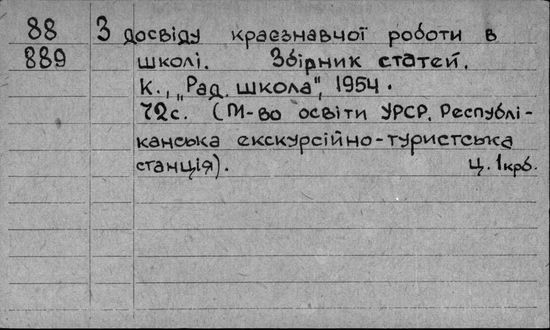 88 З досвіду краєзнавчої роботи в
889 школі. Збірник статей.
К., „Рад. школа", 1954.
72с. (М-во освіти УРСР. Республі-
канська екскурсійно-туристська
станція). Ц. 1крб.